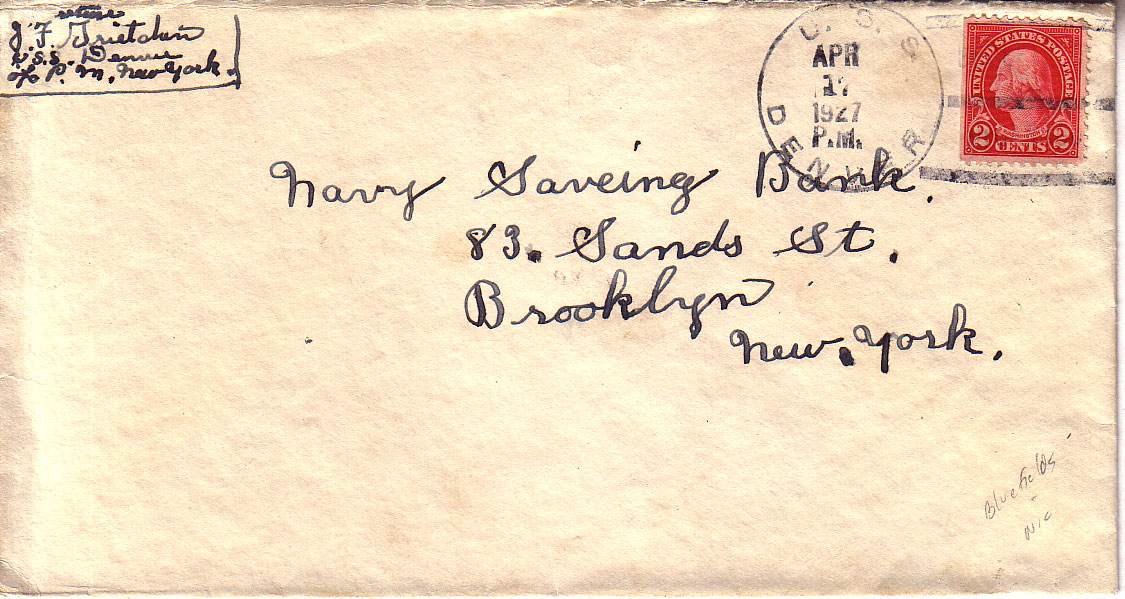 return
J. F.
U.S.S. Denver
c/o P. M. New York.
U. S. S.
DENVER
APR
17
1927
P.M.
UNITED STATES POSTAGE
WASHINGTON
2 CENTS 2
Navy Saveing Bank.
83. Sands St.
Brooklyn
New. York.
Bluefields
Nic